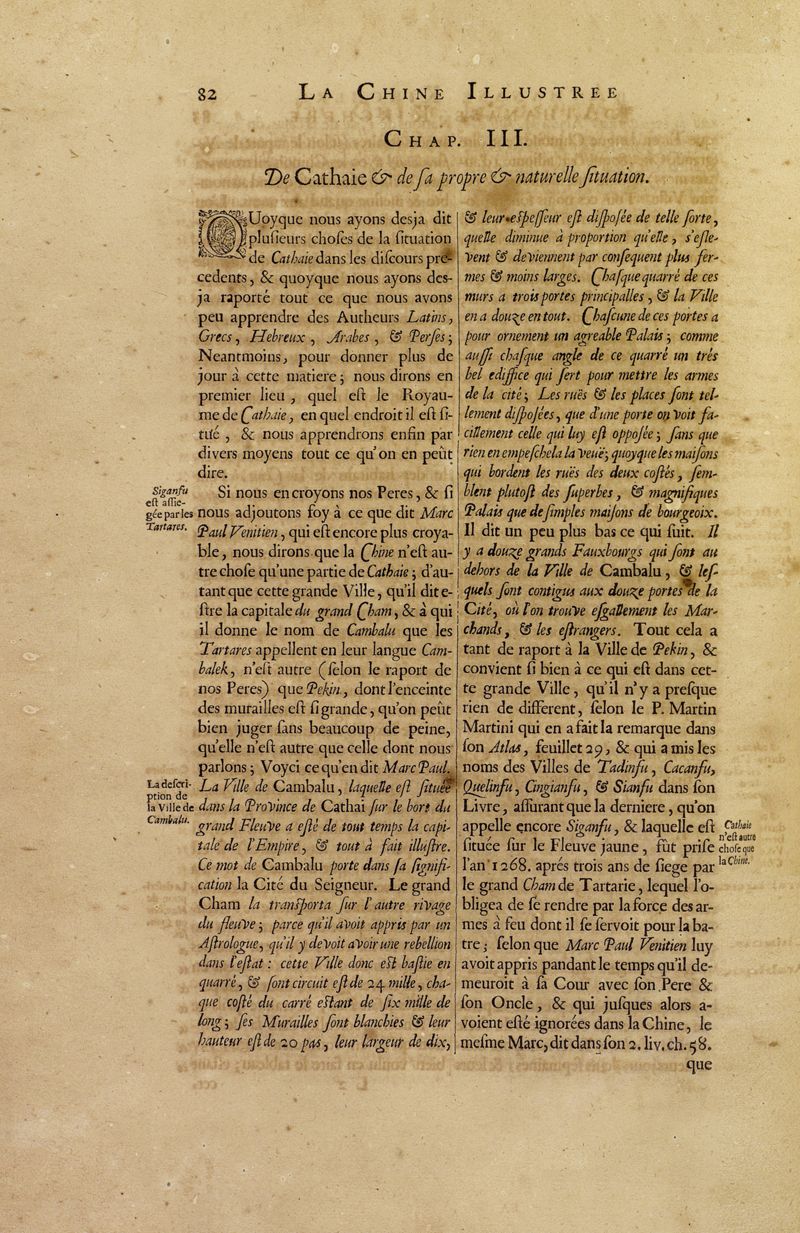 82 LA CHINE ILLUSTREE
CHAP. III.
De Cathaie & de ſa propre & naturelle ſituation.
QUoyque nous ayons desja dit
pluſieurs choſes de la ſituation
de Cathaie dans les diſcours pre-
cedents, & quoyque nous ayons des-
ja raporté tout ce que nous avons
peu apprendre des Autheurs Latins,
Grecs, Hebreux, Arabes, & Perſes;
Neantmoins, pour donner plus de
jour à cette matiere; nous dirons en
premier lieu, quel eſt le Royau-
me de Cathaie, en quel endroit il eſt ſi-
tué, & nous apprendrons enfin par
divers moyens tout ce qu'on en peût
dire.
Siganfu
eſt aſſie-
gée par les
Tartares.
Si nous en croyons nos Peres, & ſi
nous adjoutons foy à ce que dit Marc
Paul Venitien, qui eſt encore plus croya-
ble, nous dirons que la Chine n'eſt au-
tre choſe qu'une partie de Cathaie; d'au-
tant que cette grande Ville, qu'il dit e-
ſtre la capitale du grand Cham, & à qui
il donne le nom de Cambalu que les
Tartares appellent en leur langue Cam-
balek, n'eſt autre (ſelon le raport de
nos Peres) que Pekin, dont l'enceinte
des murailles eſt ſi grande, qu'on peût
bien juger ſans beaucoup de peine,
qu'elle n'eſt autre que celle dont nous
parlons; Voyci ce qu'en dit Marc Paul.
La deſcri-
ption de
la Ville de
Cambalu.
La Ville de Cambalu, laquelle eſt ſituée
dans la Province de Cathai ſur le bort du
grand Fleuve a eſté de tout temps la capi-
tale de l'Empire, & tout à fait illuſtre.
Ce mot de Cambalu porte dans ſa ſignifi-
cation la Cité du Seigneur. Le grand
Cham la tranſporta ſur l'autre rivage
du fleuve; parce qu'il avoit appris par un
Aſtrologue, qu'il y devoit avoir une rebellion
dans l'eſtat: cette Ville donc eſt baſtie en
quarré, & ſont circuit eſt de 24 mille, cha-
que coſté du carré eſtant de ſix mille de
long; ſes Murailles ſont blanchies & leur
hauteur eſt de 20 pas, leur largeur de dix,
& leur eſpeſſeur eſt diſpoſée de telle ſorte,
quelle diminue à proportion qu'elle, s'eſle-
vent & deviennent par conſequent plus fer-
mes & moins larges. Chaſque quarré de ces
murs a trois portes principalles, & la Ville
en a douze en tout. Chaſcune de ces portes a
pour ornement un agreable Palais; comme
auſſi chaſque angle de ce quarré un trés
bel ediffice qui ſert pour mettre les armes
de la cité; Les ruës & les places ſont tel-
lement diſpoſées, que d'une porte on voit fa-
cillement celle qui luy eſt oppoſée; ſans que
rien en empeſchela la veuë; quoyque les maiſons
qui bordent les ruës des deux coſtés, ſem-
blent plutoſt des ſuperbes, & magnifiques
Palais que de ſimples maiſons de bourgeoix.
Il dit un peu plus bas ce qui ſuit. Il
y a douze grands Fauxbourgs qui ſont au
dehors de la Ville de Cambalu, & leſ-
quels ſont contigus aux douze portes de la
Cité, où l'on trouve eſgallement les Mar-
chands, & les eſtrangers. Tout cela a
tant de raport à la Ville de Pekin, &
convient ſi bien à ce qui eſt dans cet-
te grande Ville, qu'il n'y a preſque
rien de different, ſelon le P. Martin
Martini qui en a fait la remarque dans
ſon Atlas, feuillet 29, & qui a mis les
noms des Villes de Tadinfu, Cacanfu,
Quelinfu, Cingianfu, & Sianfu dans ſon
Livre, aſſurant que la derniere, qu'on
appelle encore Siganfu, & laquelle eſt
ſituée ſur le Fleuve jaune, fût priſe
l'an 1268. aprés trois ans de ſiege par
le grand Cham de Tartarie, lequel l'o-
bligea de ſe rendre par la force des ar-
mes à feu dont il ſe ſervoit pour la ba-
tre; ſelon que Marc Paul Venitien luy
avoit appris pandant le temps qu'il de-
meuroit à ſa Cour avec ſon Pere &
ſon Oncle, & qui juſques alors a-
voient eſté ignorées dans la Chine, le
meſme Marc, dit dans ſon 2. liv. ch. 58.
Cathaie
n'eſt autre
choſe que
la Chine.
que